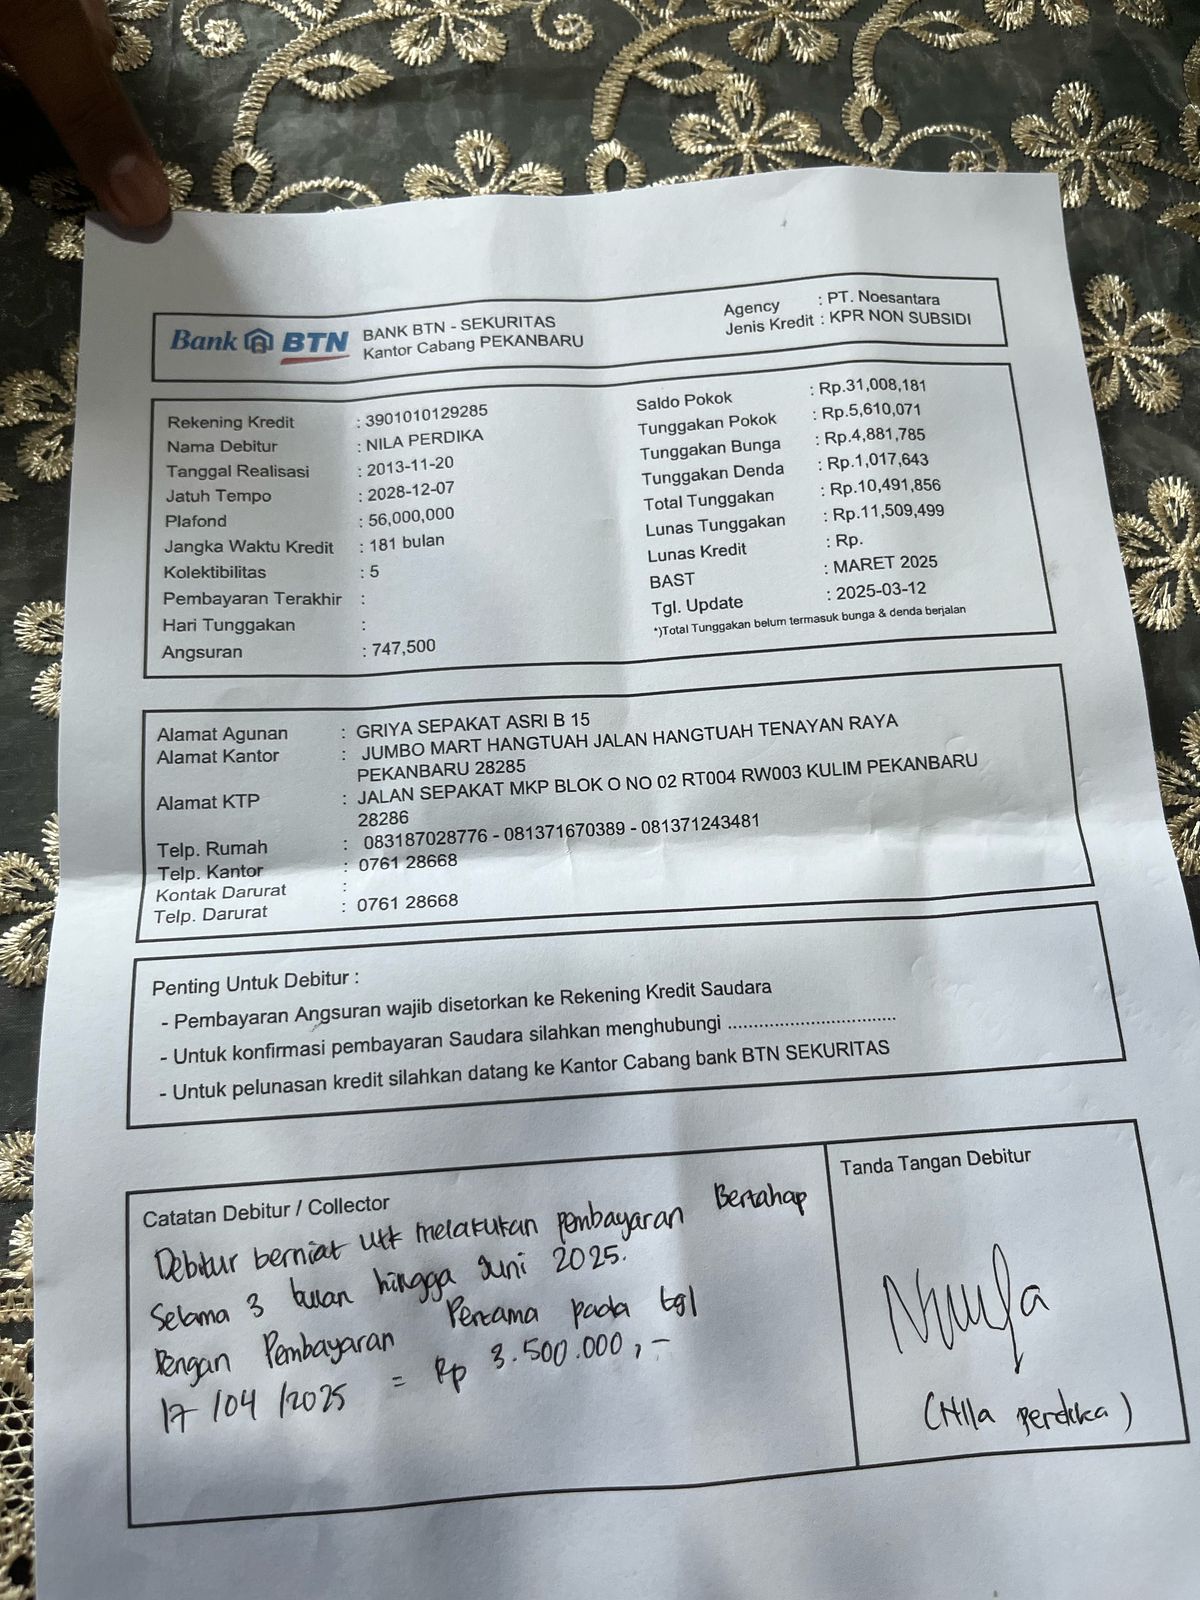 Bank BTN
BANK BTN - SEKURITAS
Kantor Cabang PEKANBARU
Agency : PT. Noesantara
Jenis Kredit : KPR NON SUBSIDI
Rekening Kredit : 3901010129285
Nama Debitur : NILA PERDIKA
Tanggal Realisasi : 2013-11-20
Jatuh Tempo : 2028-12-07
Plafond : 56,000,000
Jangka Waktu Kredit : 181 bulan
Kolektibilitas : 5
Pembayaran Terakhir :
Hari Tunggakan :
Angsuran : 747,500
Saldo Pokok : Rp.31,008,181
Tunggakan Pokok : Rp.5,610,071
Tunggakan Bunga : Rp.4,881,785
Tunggakan Denda : Rp.1,017,643
Total Tunggakan : Rp.10,491,856
Lunas Tunggakan : Rp.11,509,499
Lunas Kredit : Rp.
BAST : MARET 2025
Tgl. Update : 2025-03-12
*)Total Tunggakan belum termasuk bunga & denda berjalan
Alamat Agunan : GRIYA SEPAKAT ASRI B 15
Alamat Kantor : JUMBO MART HANGTUAH JALAN HANGTUAH TENAYAN RAYA
PEKANBARU 28285
Alamat KTP : JALAN SEPAKAT MKP BLOK O NO 02 RT004 RW003 KULIM PEKANBARU
28286
Telp. Rumah : 083187028776 - 081371670389 - 081371243481
Telp. Kantor : 0761 28668
Kontak Darurat :
Telp. Darurat : 0761 28668
Penting Untuk Debitur :
- Pembayaran Angsuran wajib disetorkan ke Rekening Kredit Saudara
- Untuk konfirmasi pembayaran Saudara silahkan menghubungi ................................
- Untuk pelunasan kredit silahkan datang ke Kantor Cabang bank BTN SEKURITAS
Catatan Debitur / Collector
Debitur berniat utk melakukan pembayaran Bertahap
Selama 3 bulan hingga Juni 2025.
Dengan Pembayaran Pertama pada tgl
17 /04 /2025 = Rp 3.500.000,-
Tanda Tangan Debitur
(Nila perdika)